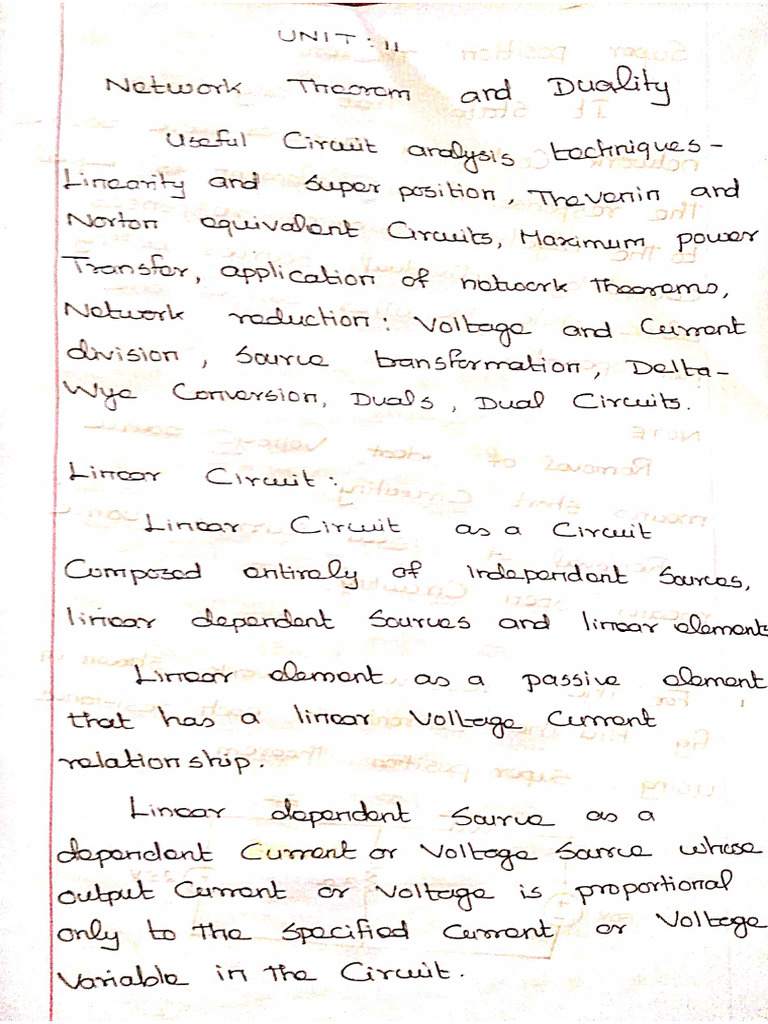 UNIT : II
Network Theorem and Duality
Useful Circuit analysis techniques -
Linearity and Super position, Thevenin and
Norton equivalent Circuits, Maximum power
Transfer, application of network Theorems,
Network reduction: Voltage and Current
division, Source transformation, Delta-
Wye Conversion, Duals, Dual Circuits.
Linear Circuit:
Linear Circuit as a Circuit
Composed entirely of independent Sources,
linear dependent Sources and linear elements
Linear element as a passive element
that has a linear Voltage Current
relationship.
Linear dependent Source as a
dependent Current or Voltage Source whose
output Current or Voltage is proportional
only to the Specified Current or Voltage
Variable in the Circuit.